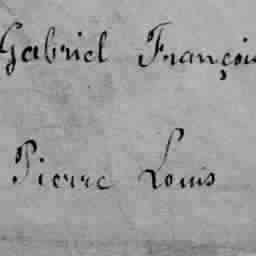 Gabriel Françoi
Pierre Louis